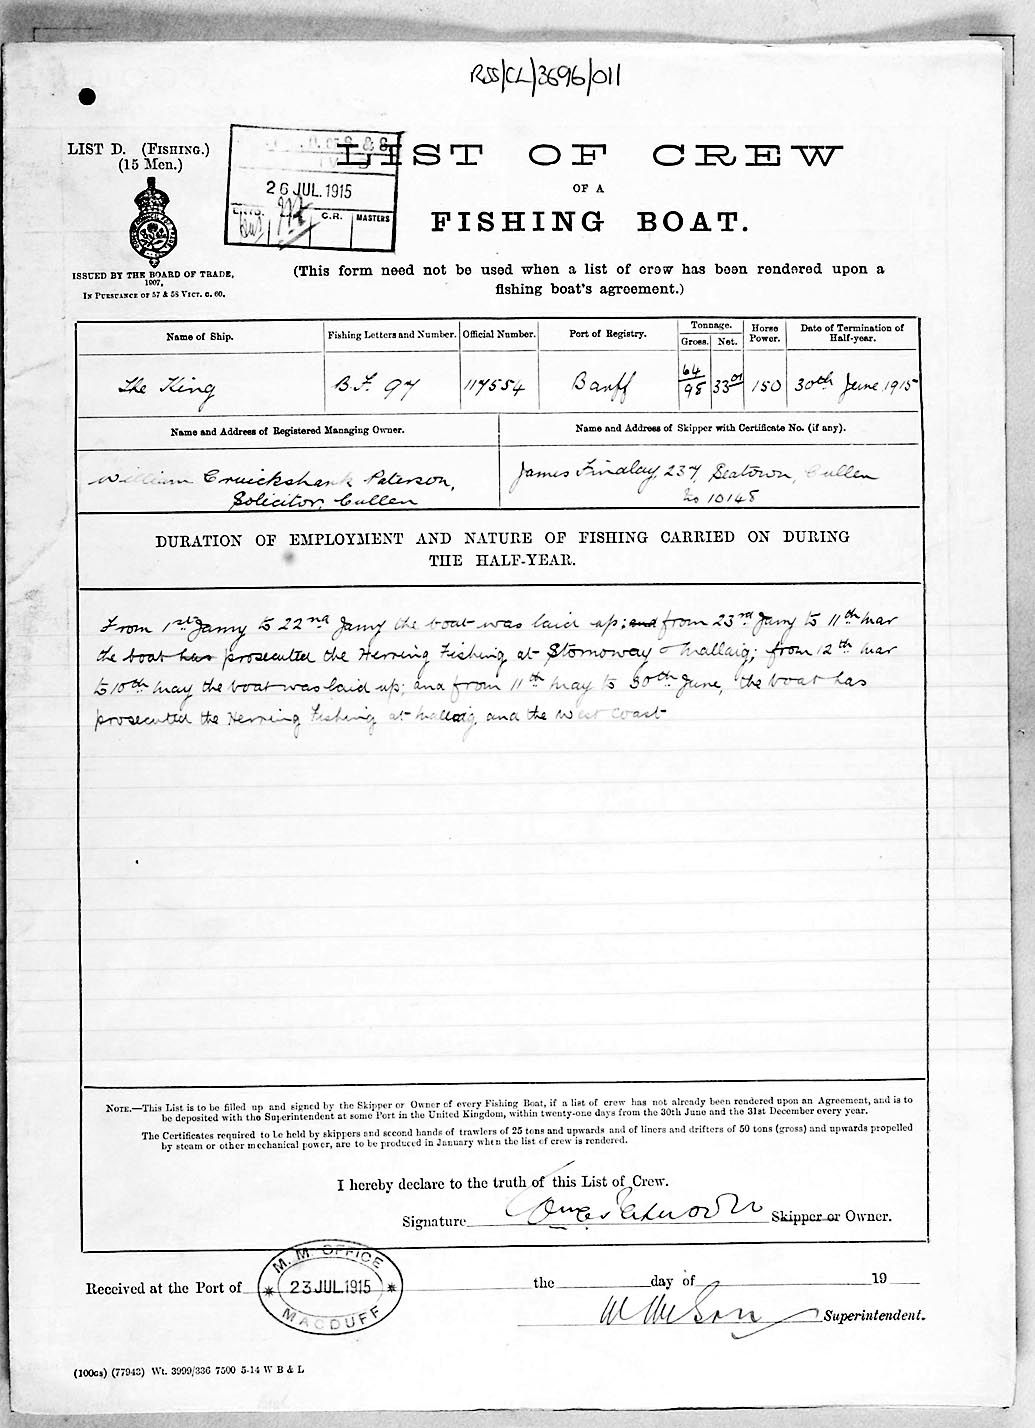 RSS/CL/3696/011
LIST D. (FISHING.)
(15 Men.)
LIST OF CREW
26 JUL. 1915
OF A
C.R. MASTERS
FISHING BOAT.
ISSUED BY THE BOARD OF TRADE,
1907,
IN PURSUANCE OF 57 & 58 VICT. C. 60.
(This form need not be used when a list of crew has been rendered upon a
fishing boat's agreement.)
Name of Ship. Fishing Letters and Number. Official Number. Port of Registry. Tonnage. Gross. Net. Horse Power. Date of Termination of Half-year.
The King B.F. 97 117554 Banff 64/98 33.01 150 30th June 1915
Name and Address of Registered Managing Owner. Name and Address of Skipper with Certificate No. (if any).
William Cruickshank Paterson, James Findlay, 237, Seatown, Cullen
Solicitor, Cullen No 10148
DURATION OF EMPLOYMENT AND NATURE OF FISHING CARRIED ON DURING
THE HALF-YEAR.
From 1st Jany to 22nd Jany the boat was laid up; and from 23rd Jany to 11th Mar
the boat has prosecuted the Herring Fishing at Stornoway & Mallaig; from 12th Mar
to 10th May the boat was laid up; and from 11th May to 30th June, the boat has
prosecuted the Herring Fishing at Mallaig and the West Coast
NOTE.—This List is to be filled up and signed by the Skipper or Owner of every Fishing Boat, if a list of crew has not already been rendered upon an Agreement, and is to
be deposited with the Superintendent at some Port in the United Kingdom, within twenty-one days from the 30th June and the 31st December every year.
The Certificates required to be held by skippers and second hands of trawlers of 25 tons and upwards and of liners and drifters of 50 tons (gross) and upwards propelled
by steam or other mechanical power, are to be produced in January when the list of crew is rendered.
I hereby declare to the truth of this List of Crew.
Signature Skipper or Owner.
M. M. OFFICE
Received at the Port of 23 JUL 1915 the day of 19
MACDUFF
Superintendent.
(100cs) (77943) Wt. 3999/336 7500 5-14 W B & L